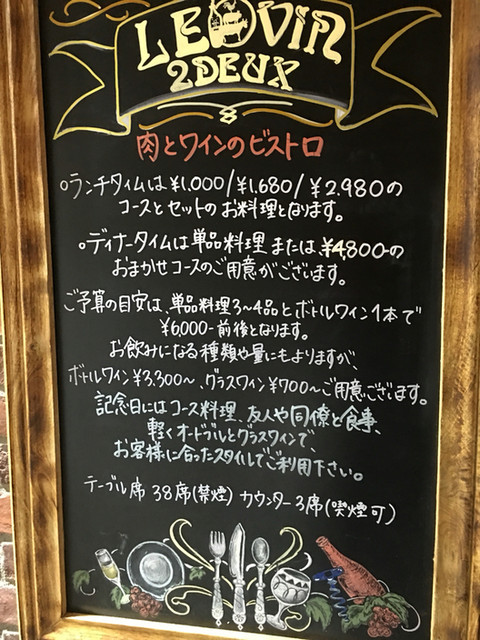 LEDVIN
2DEUX
肉とワインのビストロ
○ランチタイムは¥1.000/¥1.680/¥2.980の
コースとセットのお料理となります。
○ディナータイムは単品料理または、¥4,800-の
おまかせコースのご用意がございます。
ご予算の目安は、単品料理3~4品とボトルワイン1本で
¥6,000-前後となります。
お飲みになる種類や量にもよりますが、
ボトルワイン¥3.300~、グラスワイン¥700~ご用意ございます。
記念日にはコース料理、友人や同僚と食事、
軽くオードブルとグラスワインで、
お客様に合ったスタイルでご利用下さい。
テーブル席 38席(禁煙) カウンター3席(喫煙可)